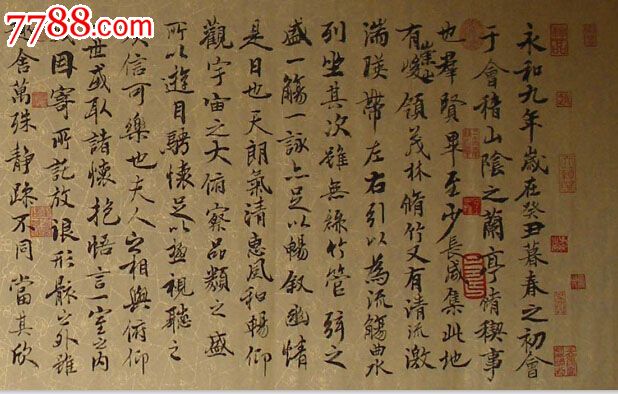 7788.com
中国收藏热线
永和九年歲在癸丑暮春之初會
于會稽山陰之蘭亭脩稧事
也羣賢畢至少長咸集此地
有崇山峻領茂林脩竹又有清流激
湍暎帶左右引以為流觴曲水
列坐其次雖無絲竹管弦之
盛一觴一詠亦足以暢敘幽情
是日也天朗氣清惠風和暢仰
觀宇宙之大俯察品類之盛
所以遊目騁懷足以極視聽之
信可樂也夫人之相與俯仰
世或取諸懷抱悟言一室之內
因寄所託放浪形骸之外雖
舍萬殊靜躁不同當其欣